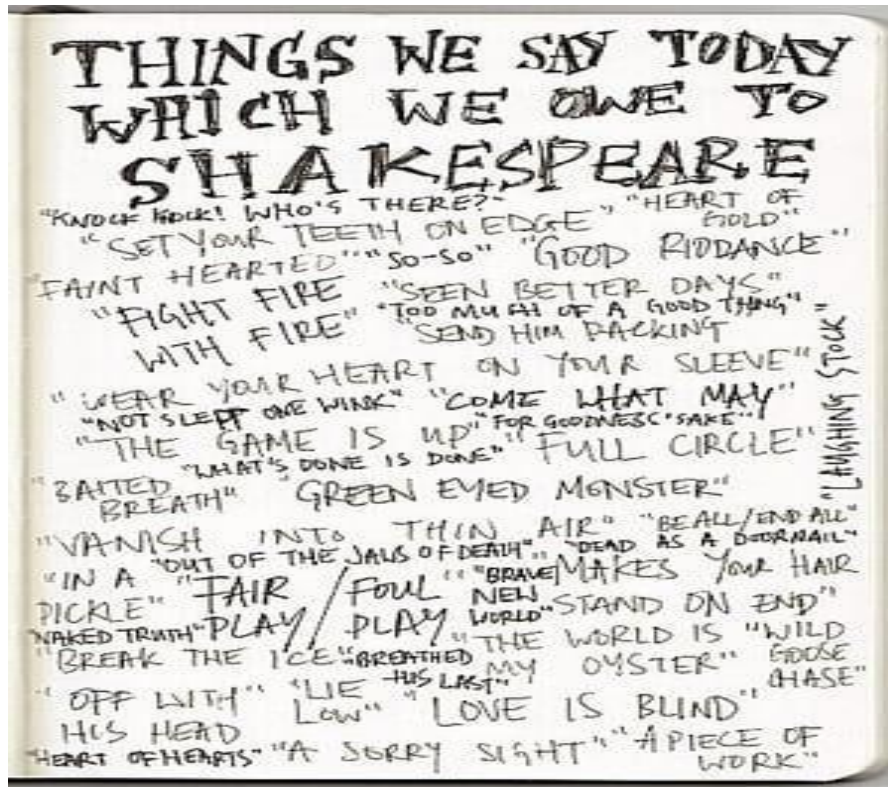 THINGS WE SAY TODAY
WHICH WE OWE TO
SHAKESPEARE
"KNOCK KNOCK! WHO'S THERE?" "HEART OF GOLD"
"SET YOUR TEETH ON EDGE"
"FAINT HEARTED" "SO-SO" "GOOD RIDDANCE"
"FIGHT FIRE WITH FIRE" "SEEN BETTER DAYS"
"TOO MUCH OF A GOOD THING"
"SEND HIM PACKING
"WEAR YOUR HEART ON YOUR SLEEVE" "LAUGHING STOCK"
"NOT SLEPT ONE WINK" "COME WHAT MAY"
"THE GAME IS UP" "FOR GOODNESS' SAKE"
"WHAT'S DONE IS DONE" "FULL CIRCLE"
"BAITED BREATH" "GREEN EYED MONSTER"
"VANISH INTO THIN AIR" "BE ALL/END ALL"
"OUT OF THE JAWS OF DEATH" "DEAD AS A DOORNAIL"
"IN A PICKLE" "FAIR PLAY / FOUL PLAY" "BRAVE NEW WORLD" MAKES YOUR HAIR STAND ON END"
"NAKED TRUTH"
"BREAK THE ICE" "BREATHED HIS LAST" "THE WORLD IS MY OYSTER" "WILD GOOSE CHASE"
"OFF WITH HIS HEAD" "LIE LOW" "LOVE IS BLIND"
"HEART OF HEARTS" "A SORRY SIGHT" "A PIECE OF WORK"